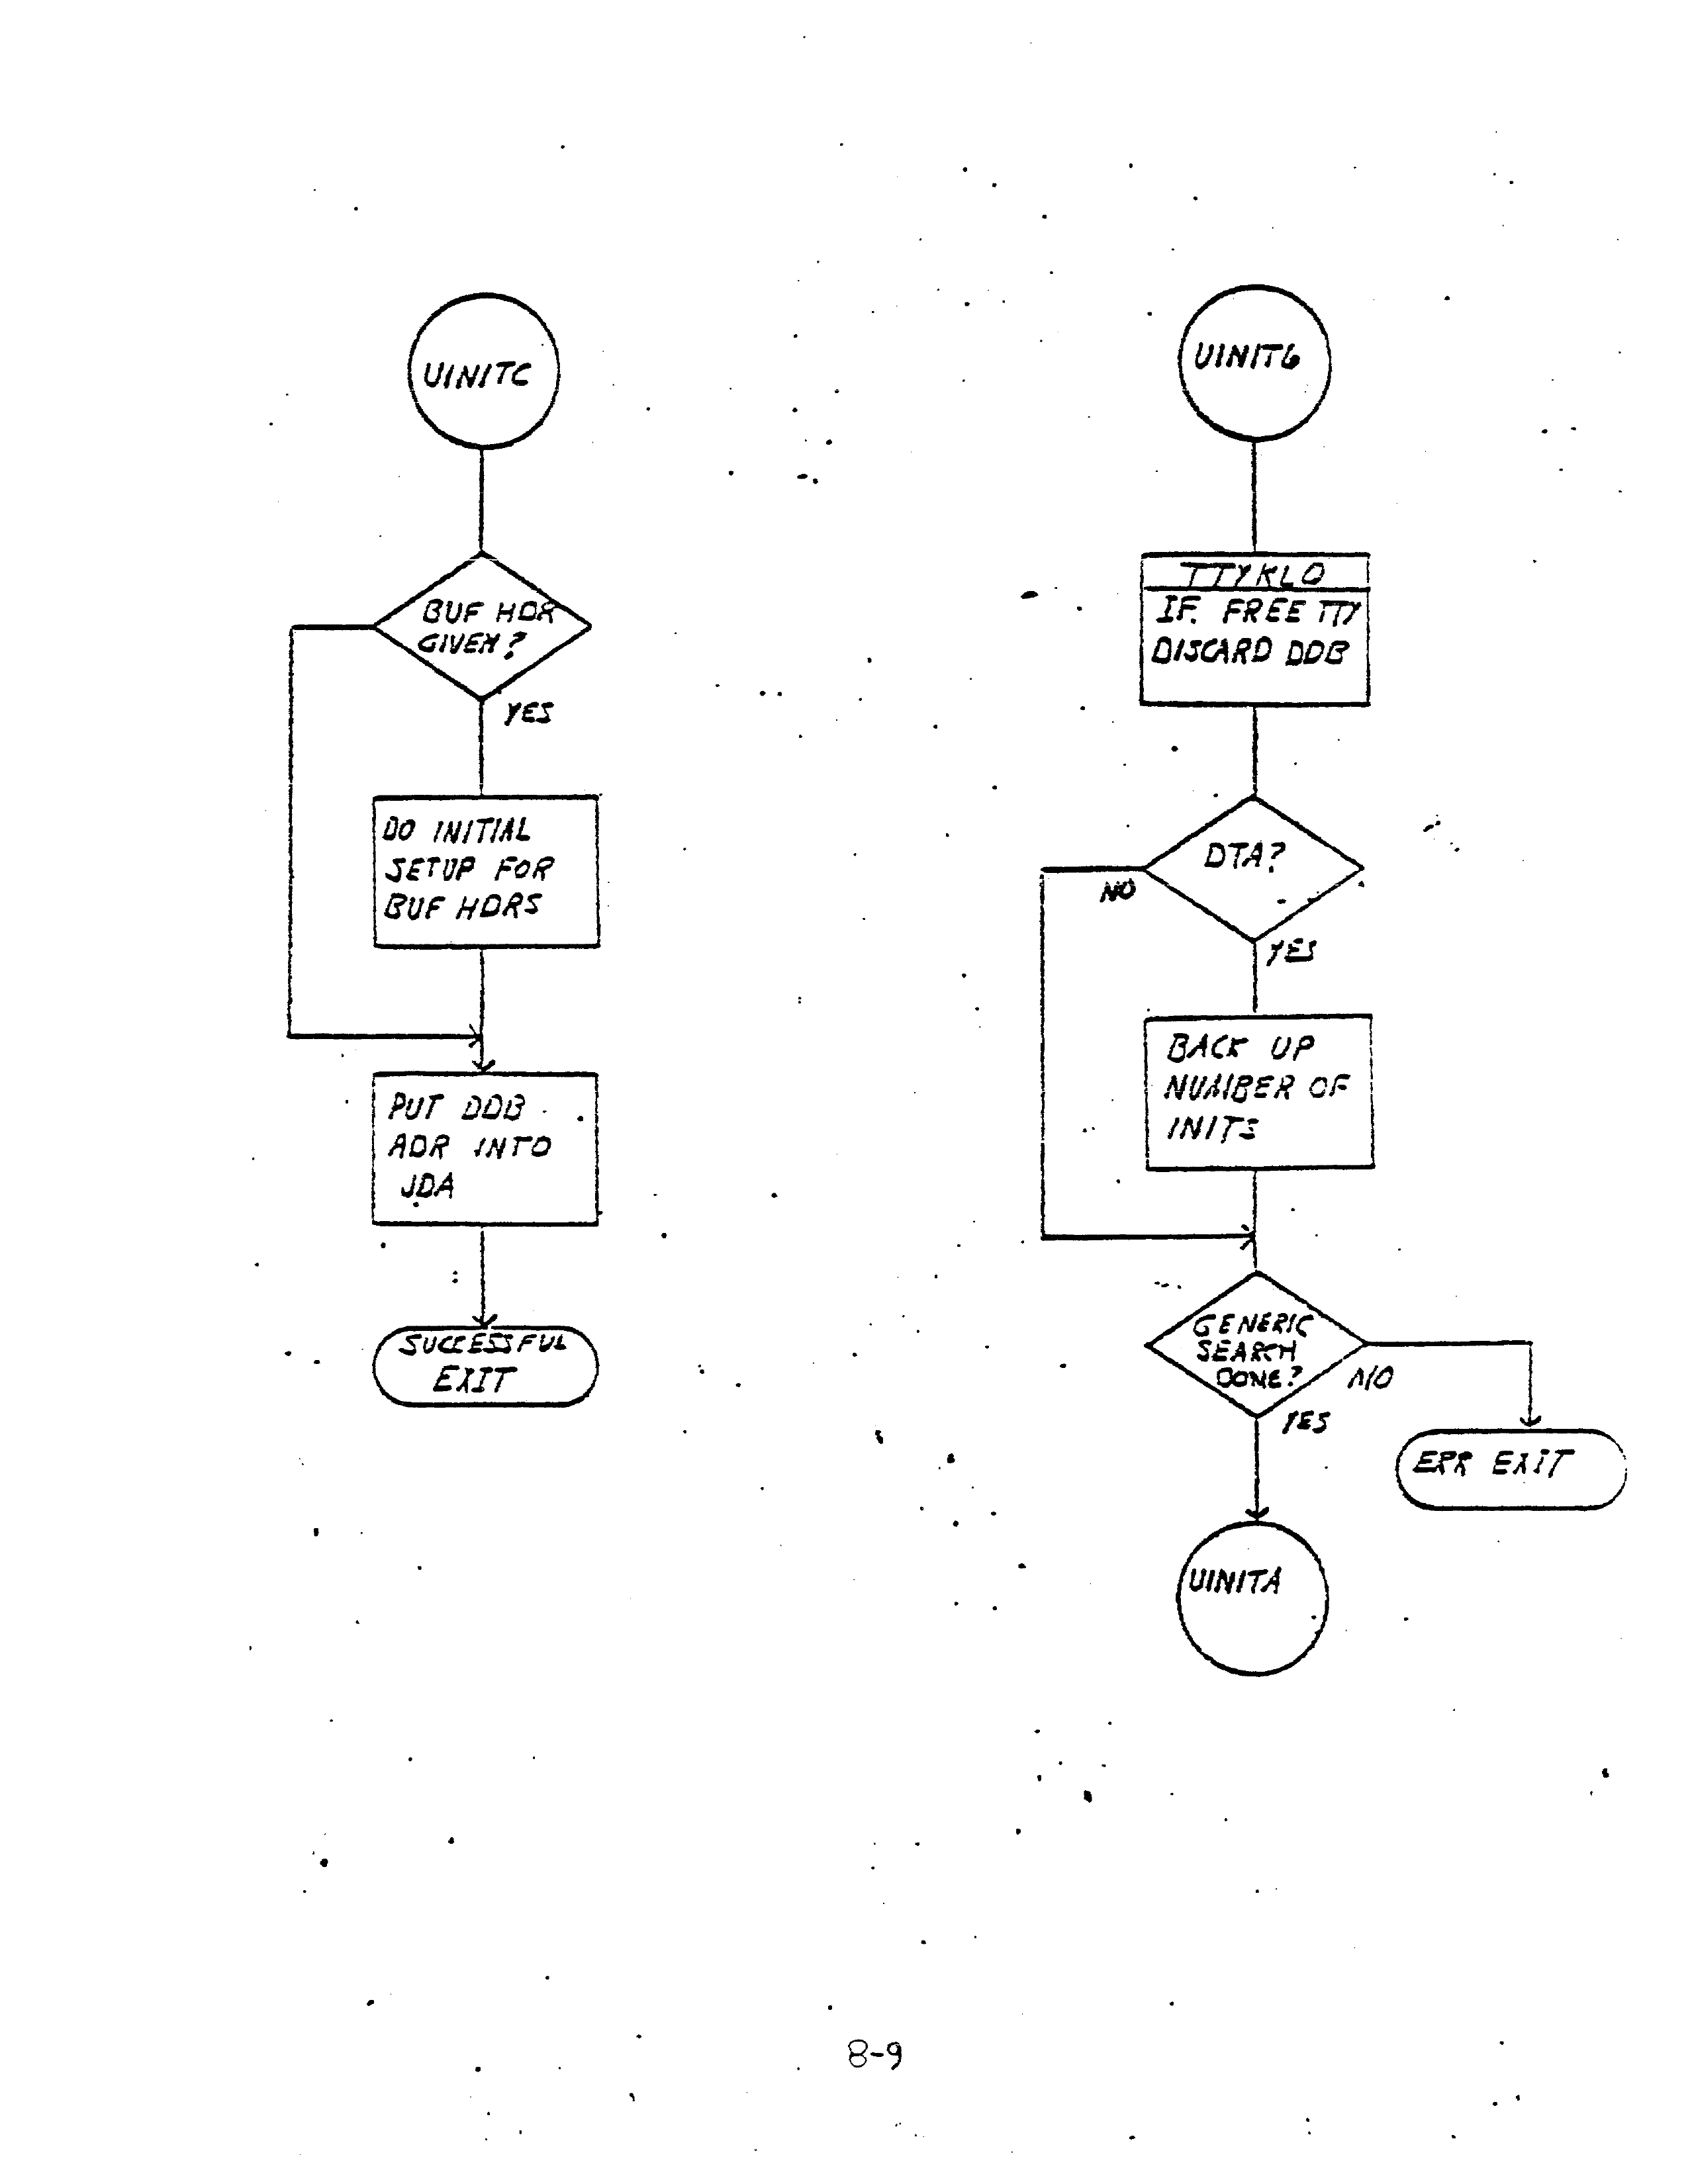 UINITC
BUF HDR
GIVEN?
YES
DO INITIAL
SETUP FOR
BUF HDRS
PUT DDB
ADR INTO
JDA
SUCCESSFUL
EXIT
UINITG
TTYKLO
IF FREE TTY
DISCARD DDB
DTA?
NO
YES
BACK UP
NUMBER OF
INITS
GENERIC
SEARCH
DONE?
NO
YES
ERR EXIT
UINITA
8-9